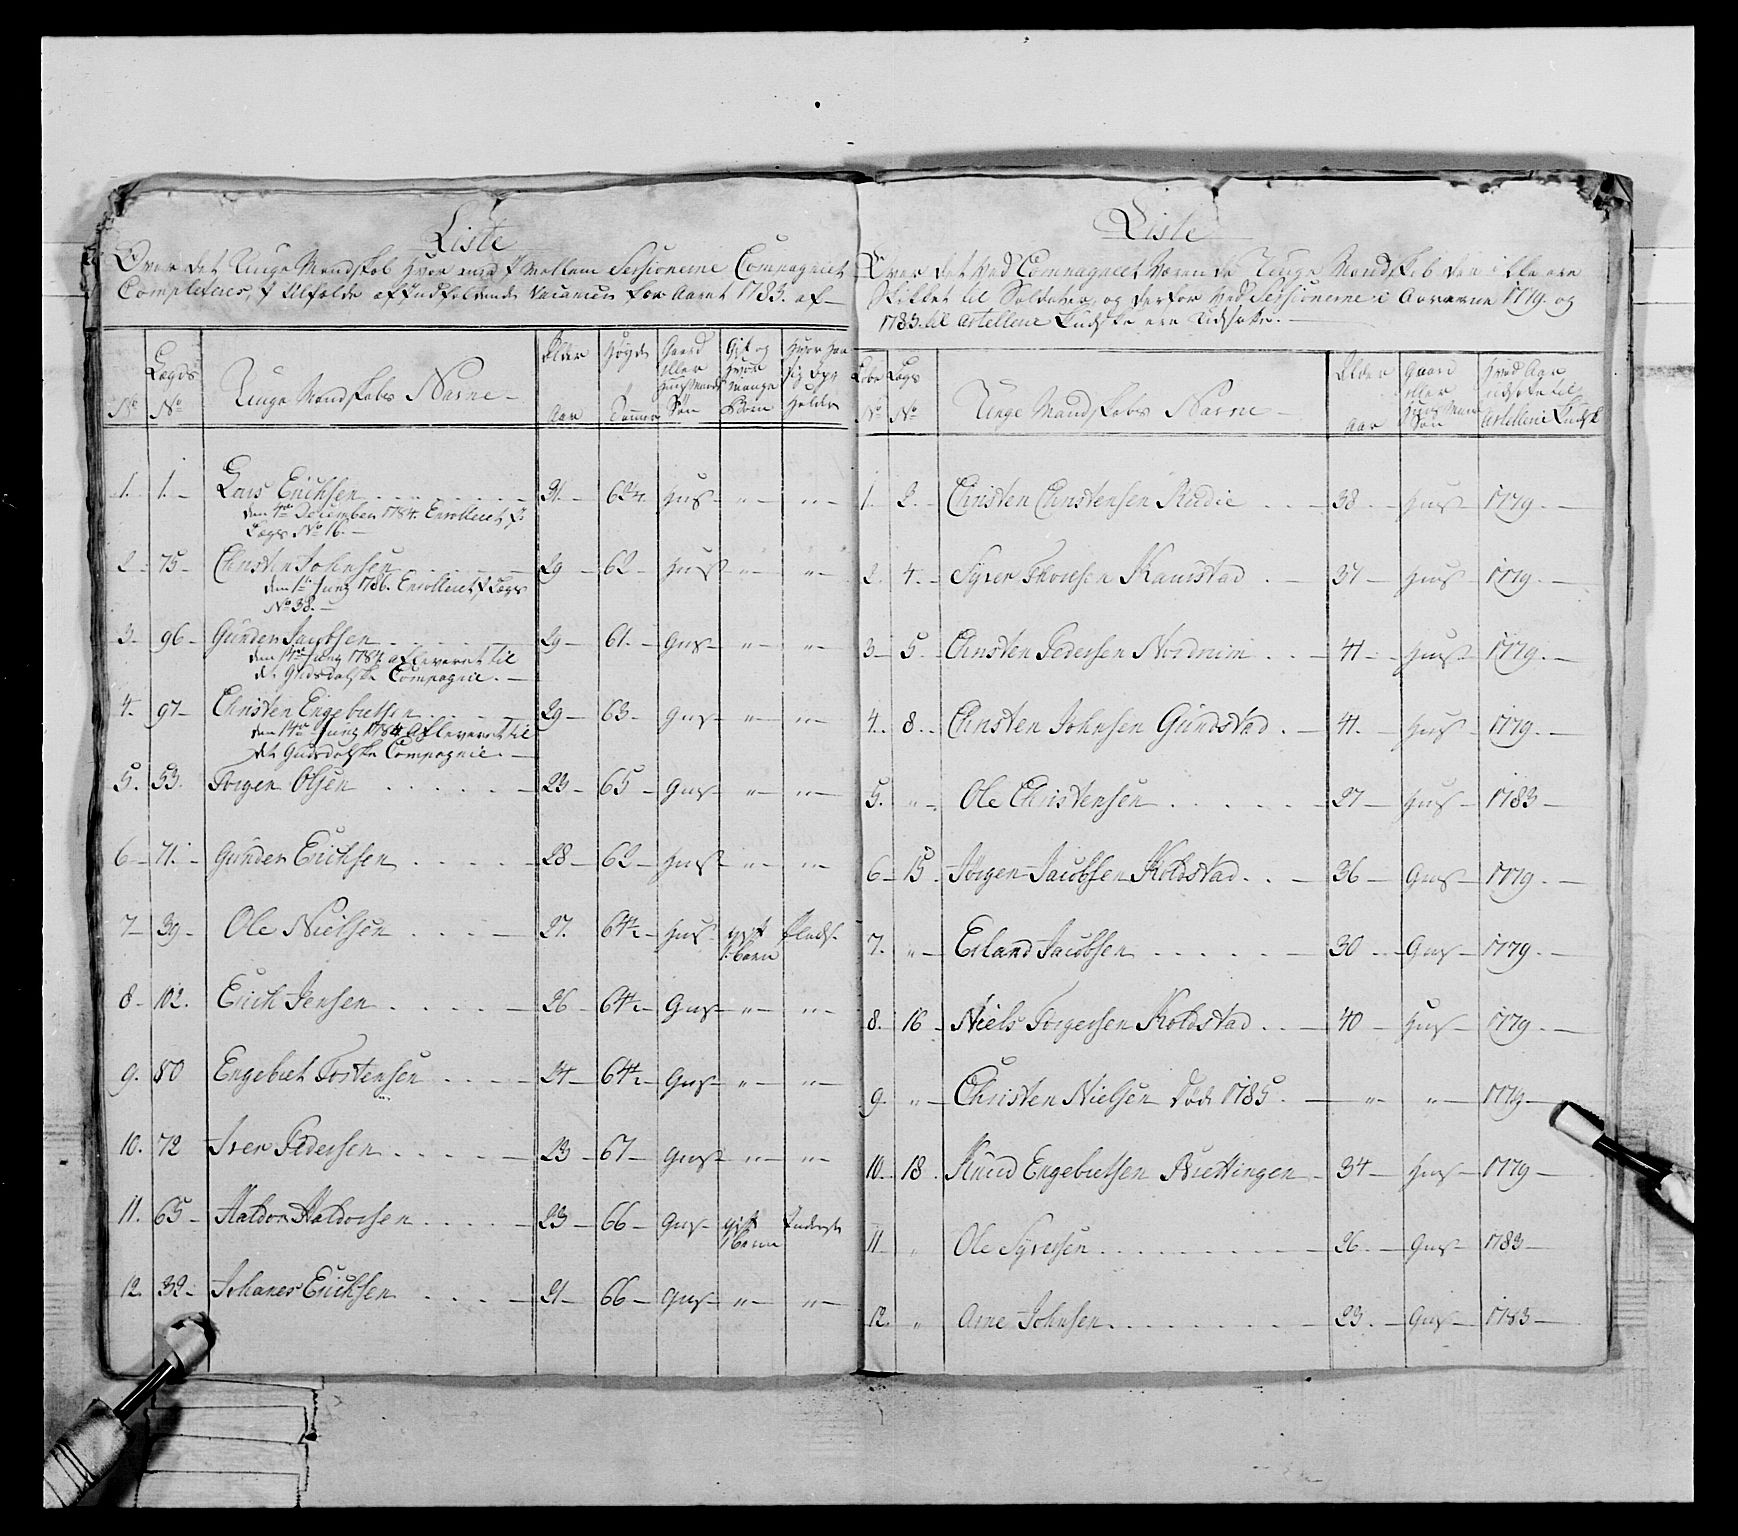 Liste
Over det Unge Mandskab hvor med mellem Sessionerne Compagniet
Completeres, i tilfælde af Indfaldende Vacancer for Aaret 1783. af
No
Lægds No
Unge Mandskabs Navne
Alder Aar
Høyde Tommer
Gaard eller Huusmands Søn
Gift og hvor mange Børn
Hvor han sig Opholder
1. 1. Lars Erichsen 31 62½ Huus " "
den 4de December 1784. Enrolleret f.
Lægd No 16.
2 75 Christen Johnsen 29 62 Huus " "
den 1te Juny 1786. Enrolleret f Lægd
No 38.
3 96 Gunder Jacobsen 29 61 Gaus " "
den 14de Juny 1784 afleveret til
det Gudsdalske Compagnie.
4. 97 Christen Engebretsen 29 63 Gaus " "
den 14de Juny 1784 Afleveret til
det Gudsdalske Compagnie.
5. 53. Torger Olsen 23 65 Gaus " "
6 71. Gunder Erichsen 28 62 Huus " "
7 39 Ole Nielsen 27. 64½ Huus gift Plads
1 barn
8 102. Erich Jensen 26 64½ Gaus " "
9. 80 Engebret Tostensen 24 64½ Gaus " "
10. 72 Iver Pedersen 23 67 Gaus " "
11. 65 Haldor Haldorsen 23 66 Gaus gift Inderst
1 barn
12. 32 Johanes Erichsen 21 66 Gaus " "
Liste
Over det ved Compagniet Værende Unge Mandskab den ikke ere
skikket til Soldater, og derfor ved Sessionerne i Aarerne 1779. og
1783. til Artellerie Kudske ere Udsatte.
Løbe No
Lægs No
Unge Mandskabs Navne
Alder Aar
Gaard eller Huusmands Søn
Hvad Aar udsatte til Artellerie Kudsk
1. 2. Christen Christensen Rudie 38 Huus 1779.
2. 4. Syver Thoresen Kamstad 37 Huus 1779.
3 5. Christen Pedersen Nordriim 41 Huus 1779.
4. 8. Christen Johnsen Gundstad 41. Huus 1779.
5. " Ole Christensen 27 Huus 1783
6 15. Jørgen Jacobsen Koldstad 36 Gaus 1779.
7. " Erland Jacobsen 30 Gaus 1779.
8. 16 Niels Torgersen Koldstad 40 Huus 1779.
9. " Christen Nielsen Død 1785. " " 1779
10. 18. Knud Engebretsen 34 Huus 1779
11 " Ole Syversen 26. Gaus 1783
12. " Arne Johnsen 23. Gaus 1783